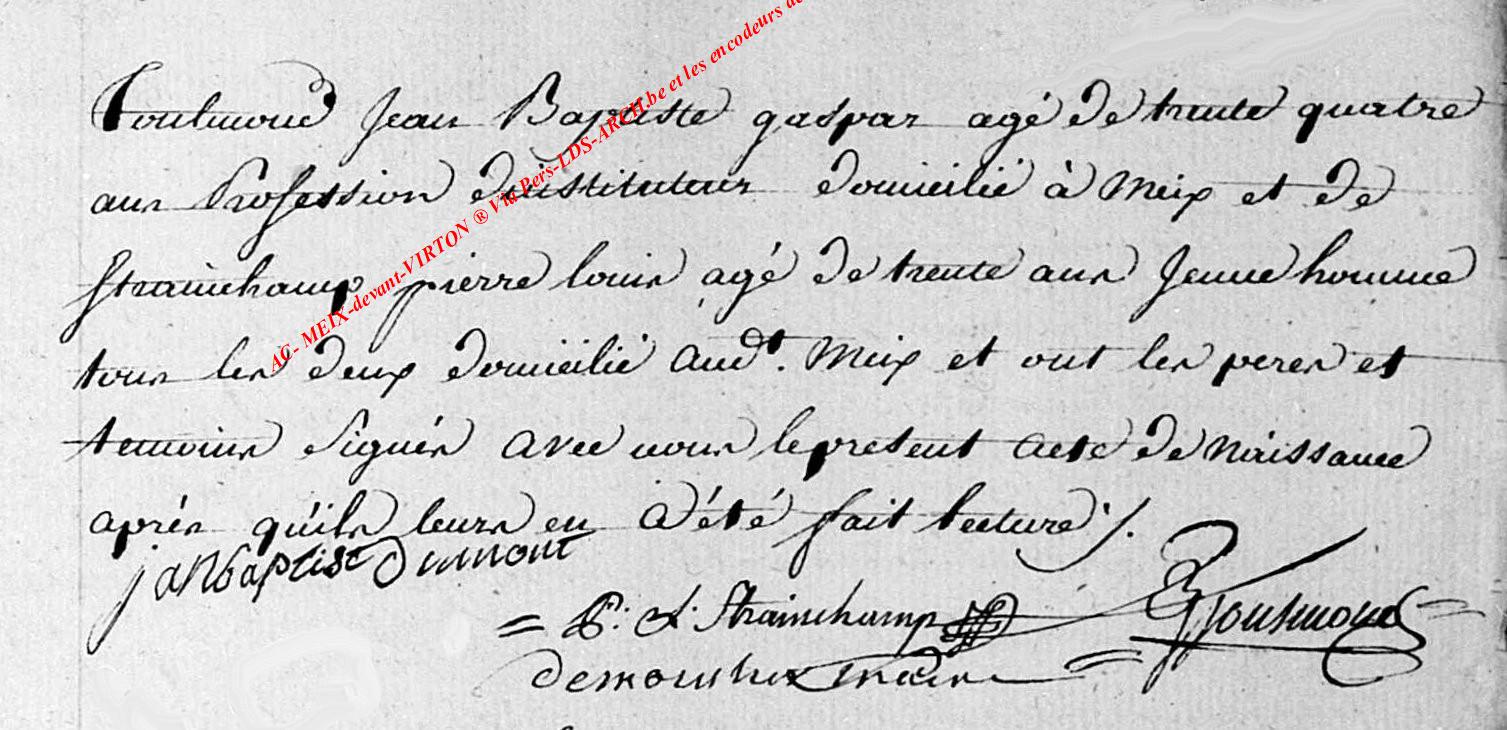 Toulmond Jean Baptiste gaspar agé de trente quatre
ans Profession d'instituteur domicilié à Meix et de
Strainchamp pierre louis agé de trente ans Jeune homme
tous les deux domicilié audt. Meix et ont les peres et
temoins Signés avec nous le present acte de Naissance
aprés qu'ils leurs en a été fait lecture ./.
jan baptist Dumont
= P: L: Strainchamp
Toulmond =
maire =
AC- MEIX-devant-VIRTON ® Via Pers-LDS-ARCH.be et les encodeurs de